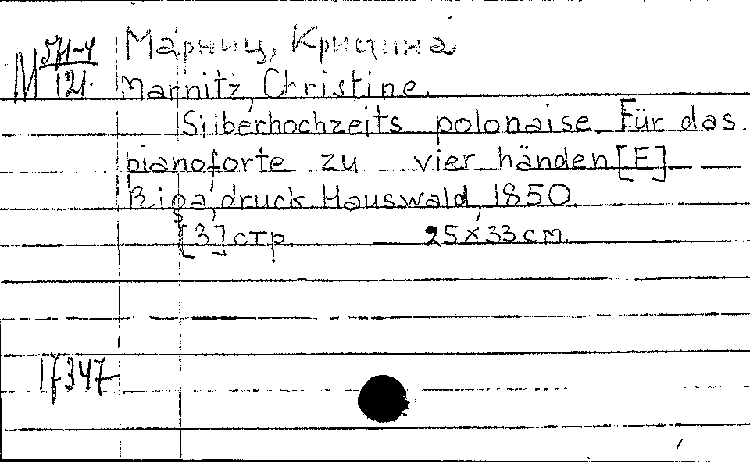 М 571-4
121
Марниц, Кристина
Marnitz, Christine.
Silberhochzeits polonaise. Für das
pianoforte zu vier händen [E]
Riga, druck Hauswald, 1850.
[3] стр. 25x33 cm.
17347